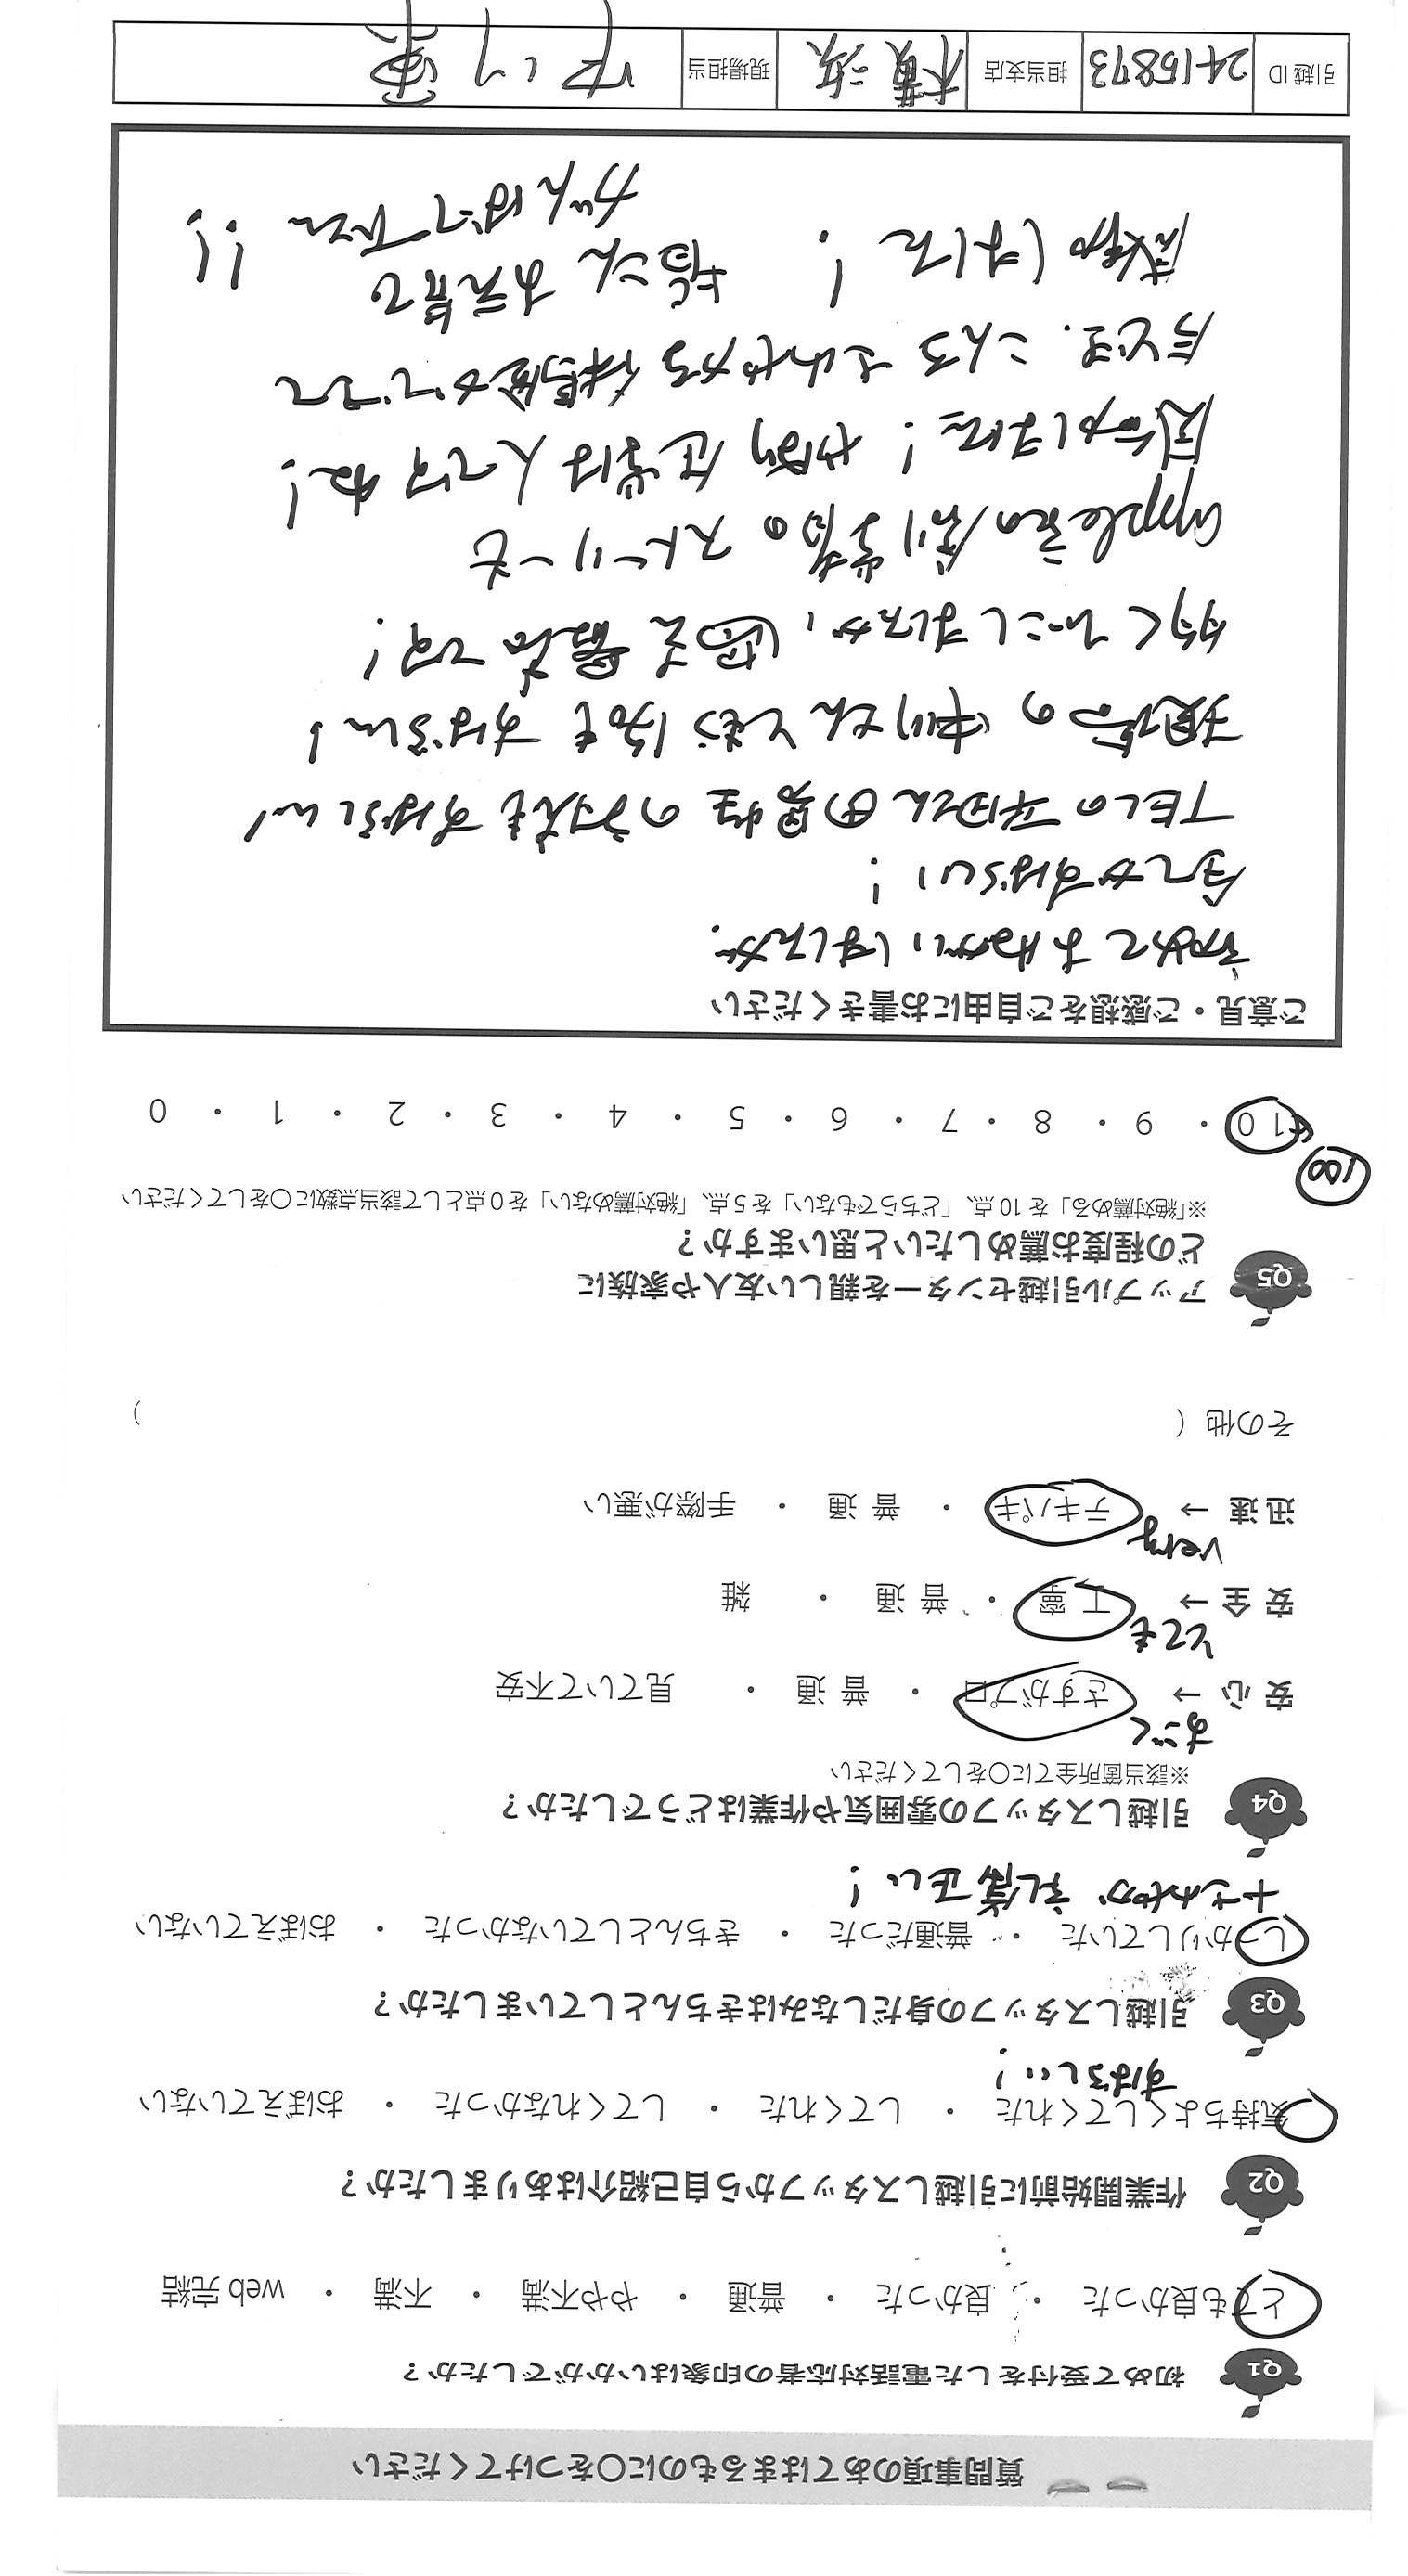 質問事項のあてはまるものに〇をつけてください
Q1 初めて受付をした電話対応者の印象はいかがでしたか？
とても良かった ・ 良かった ・ 普通 ・ やや不満 ・ 不満 ・ web 完結
Q2 作業開始前に引越しスタッフから自己紹介はありましたか？
気持ちよくしてくれた ・ してくれた ・ してくれなかった ・ おぼえていない
すばらしい！
Q3 引越しスタッフの身だしなみはきちんとしていましたか？
しっかりしていた ・ 普通だった ・ きちんとしていなかった ・ おぼえていない
＋さわやか 礼儀正しい！
Q4 引越しスタッフの雰囲気や作業はどうでしたか？
※該当箇所全てに〇をしてください
すごく
安心 → さすがプロ ・ 普通 ・ 見ていて不安
とても
安全 → 丁寧 ・ 普通 ・ 雑
very
迅速 → テキパキ ・ 普通 ・ 手際が悪い
その他（ ）
Q5 アップル引越センターを親しい友人や家族に
どの程度お薦めしたいと思いますか？
※「絶対薦める」を 10 点、「どちらでもない」を 5 点、「絶対薦めない」を 0 点として該当点数に〇をしてください
100
10 ・ 9 ・ 8 ・ 7 ・ 6 ・ 5 ・ 4 ・ 3 ・ 2 ・ 1 ・ 0
ご意見・ご感想をご自由にお書きください
初めておねがいしましたが、
全てがすばらしい！
TELの平田さん 男性の対応もすばらしい！
現場の中川さんともう1名もすばらしい！
多くひっこししましたが、過去最高です！
apple さんの創業者のストーリーも
感動しました！ やはり企業は人ですね！
今どき、こんなさわやかな 体験ができて
感動しました！ 皆さん お元気で
がんばって下さい！！
引越 ID 2415873 担当支店 横浜 現場担当 中川